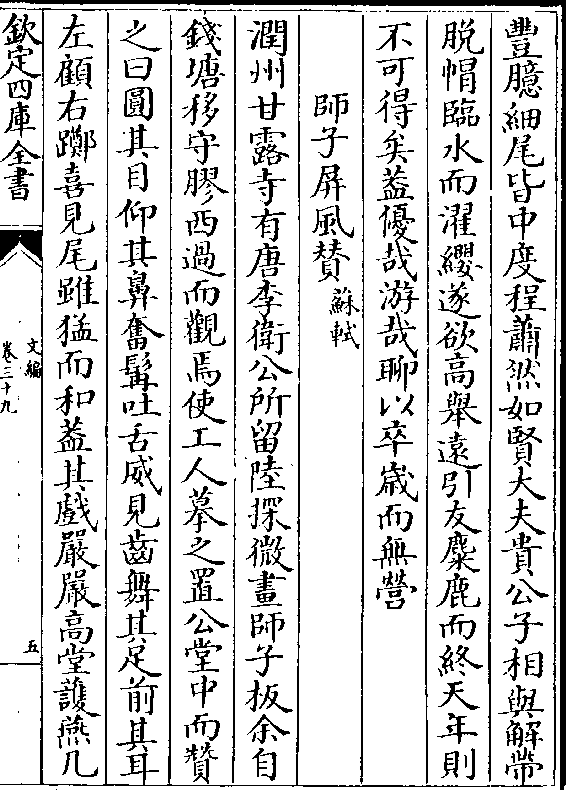 豐臆細尾皆中度程蕭然如賢大夫貴公子相與解帶
脱帽臨水而濯纓遂欲高舉遠引友麋鹿而終天年則
不可得矣葢優哉游哉聊以卒歲而無營
師子屏風贊 蘇軾
潤州甘露寺有唐李衛公所留陸探微畫師子板余自
錢塘移守膠西過而觀焉使工人摹之置公堂中而贊
之曰圓其目仰其鼻奮髯吐舌威見齒舞其足前其耳
左顧右躑喜見尾雖猛而和葢其戲嚴嚴高堂護燕几
欽定四庫全書
文編
卷三十九
五